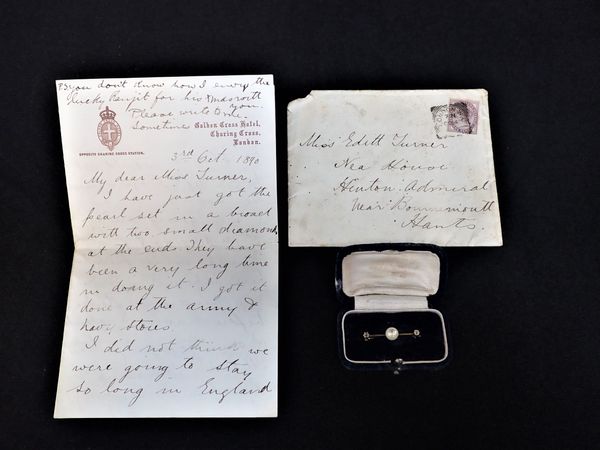 P.S. you don't know how I envy the
lucky Ranjit for his
you.
Please write to me
Sometime
Golden Cross Hotel,
Charing Cross,
London.
OPPOSITE CHARING CROSS STATION.
3rd Oct 1890
My dear Miss Turner,
I have just got the
pearl set in a broach
with two small diamonds
at the ends They have
been a very long time
in doing it. I got it
done at the army &
navy stores
I did not think we
were going to stay
so long in England
Miss Edith Turner
Nea House
Hinton Admiral
Near Bournemouth
Hants.